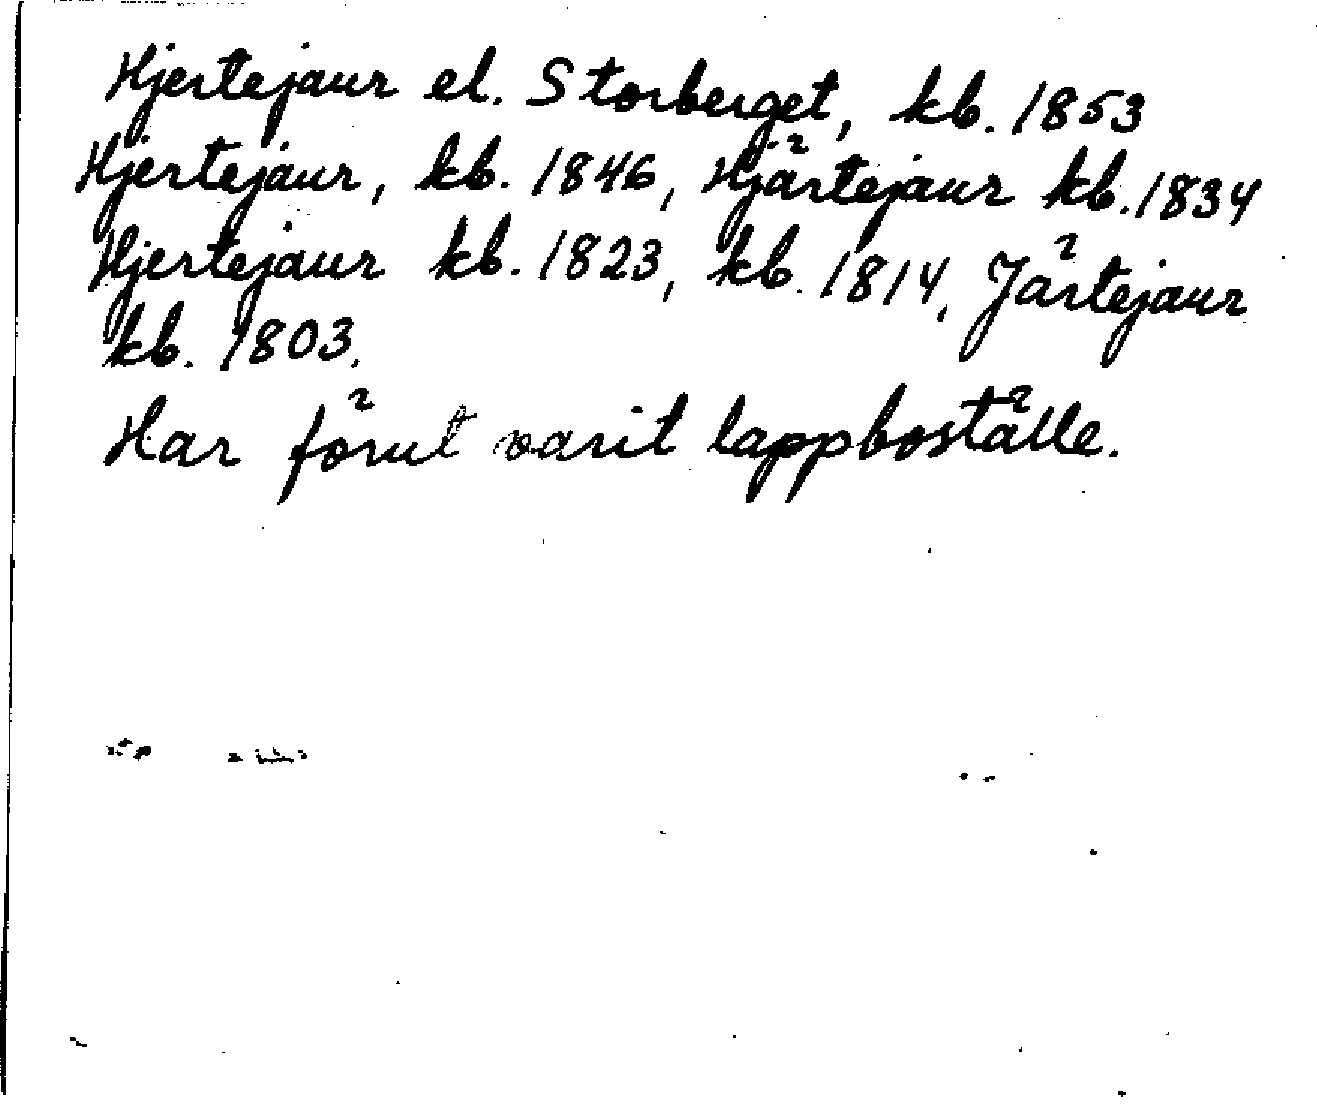 Hjertejaur el. Storberget, kb. 1853
Hjertejaur, kb. 1846, Hjärtejaur kb. 1834
Hjertejaur kb. 1823, kb. 1814, Järtejaur
kb. 1803.
Har förut varit lappboställe.